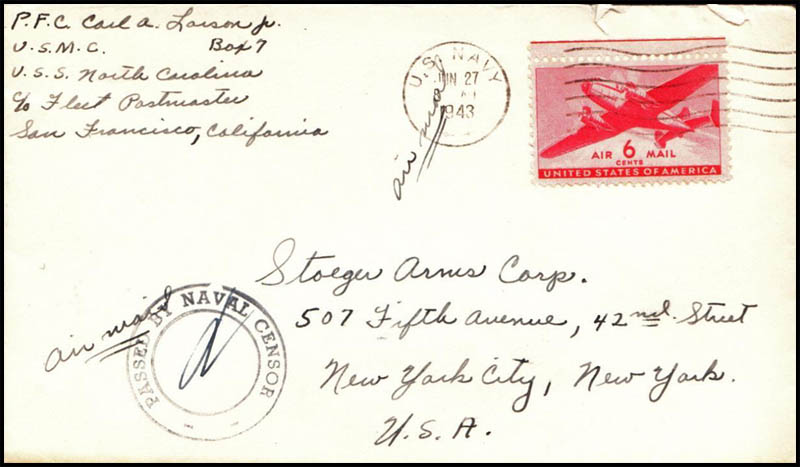 P.F.C. Carl A. Larson Jr.
U.S.M.C. Box 7
U.S.S. North Carolina
c/o Fleet Postmaster
San Francisco, California
U.S. NAVY
JUN 27
1943
air mail
AIR 6 MAIL
CENTS
UNITED STATES OF AMERICA
Stoeger Arms Corp.
507 Fifth Avenue, 42nd. Street
New York City, New York.
U.S.A.
air mail
PASSED BY NAVAL CENSOR